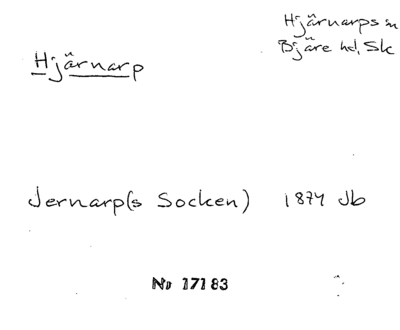 Hjärnarps sn
Bjäre hd, Sk
Hjärnarp
Jernarp(s Socken) 1874 Jb
No 17183